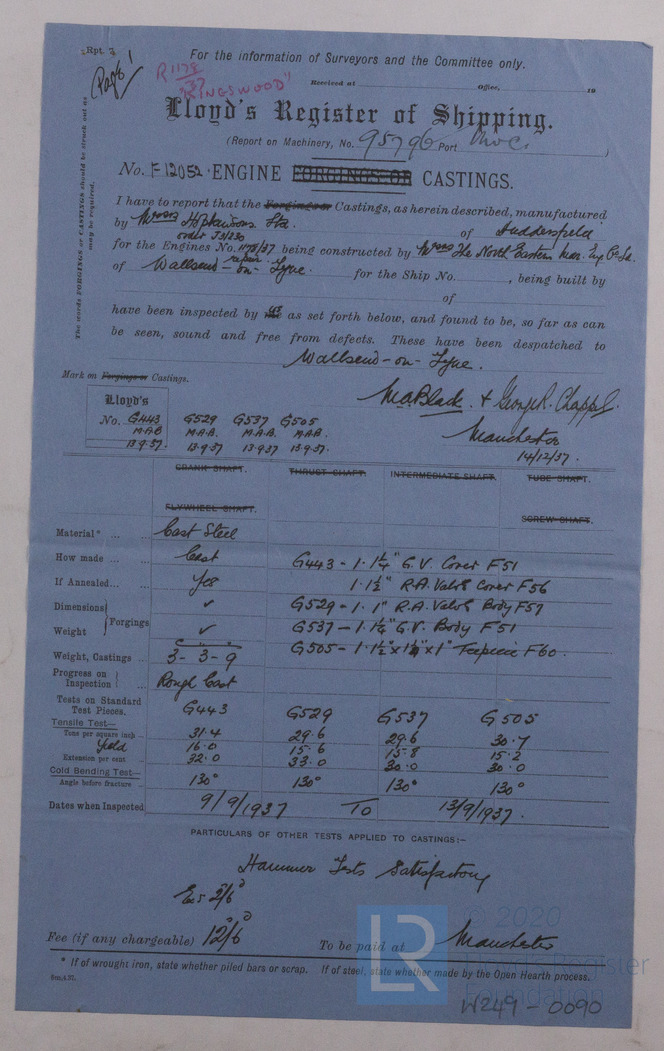 Rpt. 7
Page 1
For the information of Surveyors and the Committee only.
R 1178/37
"KINGSWOOD"
Received at Office, 19
Lloyd's Register of Shipping.
(Report on Machinery, No. 95796 Port )
No. F12052 ENGINE FORGINGS OR CASTINGS.
The words FORGINGS or CASTINGS should be struck out as may be required.
I have to report that the Forgings or Castings, as herein described, manufactured
by Messrs Hopkinsons Ltd. of Huddersfield
order J3/330
for the Engines No. 1178/37 being constructed by Messrs The North Eastern Mar. Eng Co. Ld.
repair
of Wallsend-on-Tyne. for the Ship No. , being built by
of
have been inspected by us as set forth below, and found to be, so far as can
be seen, sound and free from defects. These have been despatched to
Wallsend-on-Tyne.
Mark on Forgings or Castings.
M.A.Black. & George R. Chappel.
Lloyd's
No. G443 G529 G537 G505
M.A.B M.A.B. M.A.B. M.A.B.
13.9.37. 13.9.37 13.9.37 13.9.37.
Manchester
14/12/37.
CRANK SHAFT. THRUST SHAFT. INTERMEDIATE SHAFT. TUBE SHAFT.
FLYWHEEL SHAFT. SCREW SHAFT.
Material* ... Cast Steel
How made ... Cast G443 - 1. 1¼" G.V. Cover F51
If Annealed... Yes 1. 1½" R.A. Valve Cover F56
Dimensions Forgings ✓ G529 - 1. 1" R.A. Valve Body F57
Weight ✓ G537 - 1. 1¼" G.V. Body F51
Weight, Castings .. 3 - 3 - 9 G505 - 1. 1½" x 1" Teepiece F60.
Progress on Inspection ... Rough Cast
Tests on Standard Test Pieces. G443 G529 G537 G505
Tensile Test—
Tons per square inch .. 31.4 29.6 29.6 30.7
Yield 16.0 15.6 15.8 15.2
Extension per cent. 32.0 33.0 30.0 30.0
Cold Bending Test—
Angle before fracture .. 130° 130° 130° 130°
Dates when Inspected 9/9/1937 TO 13/9/1937.
PARTICULARS OF OTHER TESTS APPLIED TO CASTINGS:-
Hammer Tests Satisfactory
Exs 2/6
Fee (if any chargeable) 12/6 To be paid at Manchester
* If of wrought iron, state whether piled bars or scrap. If of steel, state whether made by the Open Hearth process.
LR
© 2020
Lloyd's Register
Foundation
W249-0090